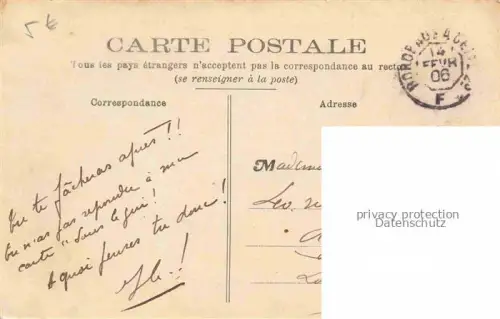 5 €
CARTE POSTALE
Tous les pays étrangers n'acceptent pas la correspondance au recto
(se renseigner à la poste)
Correspondance
Adresse
BORDEAUX A
14
FEVR
06
F
Tu te fâcheras après !!
tu n'as pas répondu à ma
carte "Sous le gui" !
A quoi penses tu donc !
Madame
privacy protection
Datenschutz